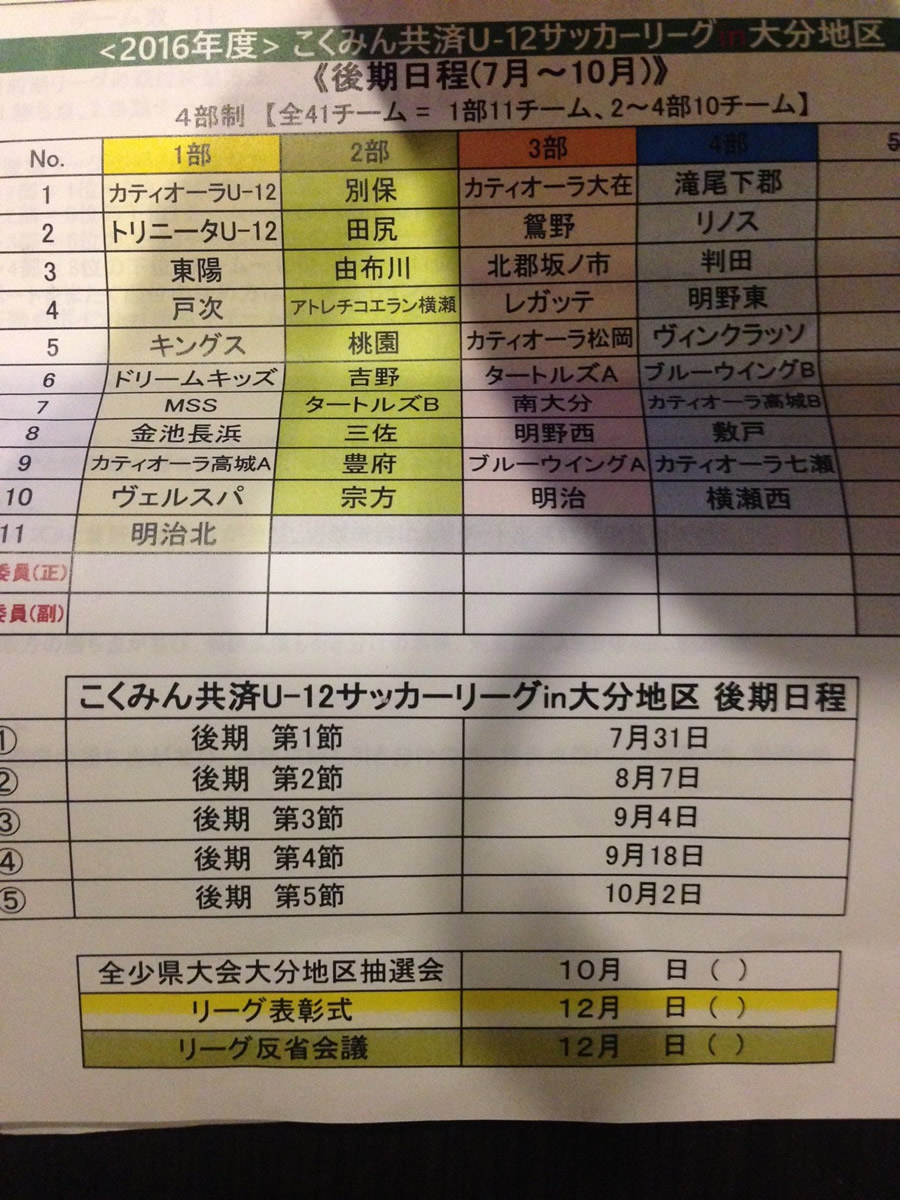 <2016年度> こくみん共済U-12サッカーリーグin大分地区
《後期日程(7月～10月)》
4部制 【全41チーム = 1部11チーム、2～4部10チーム】
No. 1部 2部 3部 4部 5
1 カティオーラU-12 別保 カティオーラ大在 滝尾下郡
2 トリニータU-12 田尻 鴛野 リノス
3 東陽 由布川 北郡坂ノ市 判田
4 戸次 アトレチコエラン横瀬 レガッテ 明野東
5 キングス 桃園 カティオーラ松岡 ヴィンクラッソ
6 ドリームキッズ 吉野 タートルズA ブルーウイングB
7 MSS タートルズB 南大分 カティオーラ高城B
8 金池長浜 三佐 明野西 敷戸
9 カティオーラ高城A 豊府 ブルーウイングA カティオーラ七瀬
10 ヴェルスパ 宗方 明治 横瀬西
11 明治北
委員(正)
委員(副)
こくみん共済U-12サッカーリーグin大分地区 後期日程
① 後期 第1節 7月31日
② 後期 第2節 8月7日
③ 後期 第3節 9月4日
④ 後期 第4節 9月18日
⑤ 後期 第5節 10月2日
全少県大会大分地区抽選会 10月 日 ( )
リーグ表彰式 12月 日 ( )
リーグ反省会議 12月 日 ( )